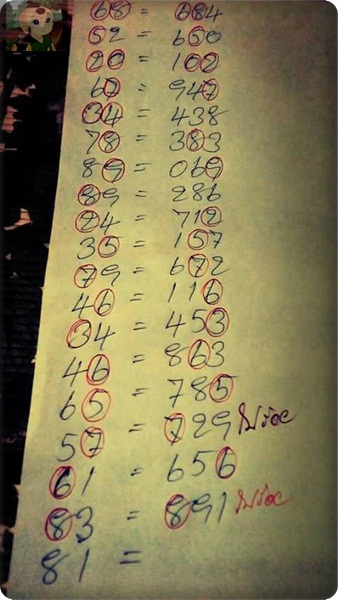 68 = 684
52 = 650
20 = 102
67 = 947
34 = 438
78 = 383
89 = 069
89 = 286
24 = 712
35 = 157
79 = 672
46 = 116
34 = 453
46 = 863
65 = 785
57 = 729 ไม่รอง
61 = 656
83 = 891 ไม่รอง
81 =